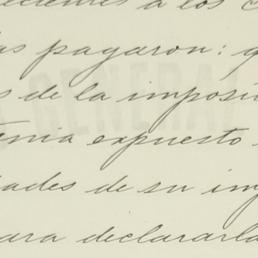 cientes a los
las pagaron: q
s de la imposi
tenia expuesto
dades de su imp
para declararla
GENERAL